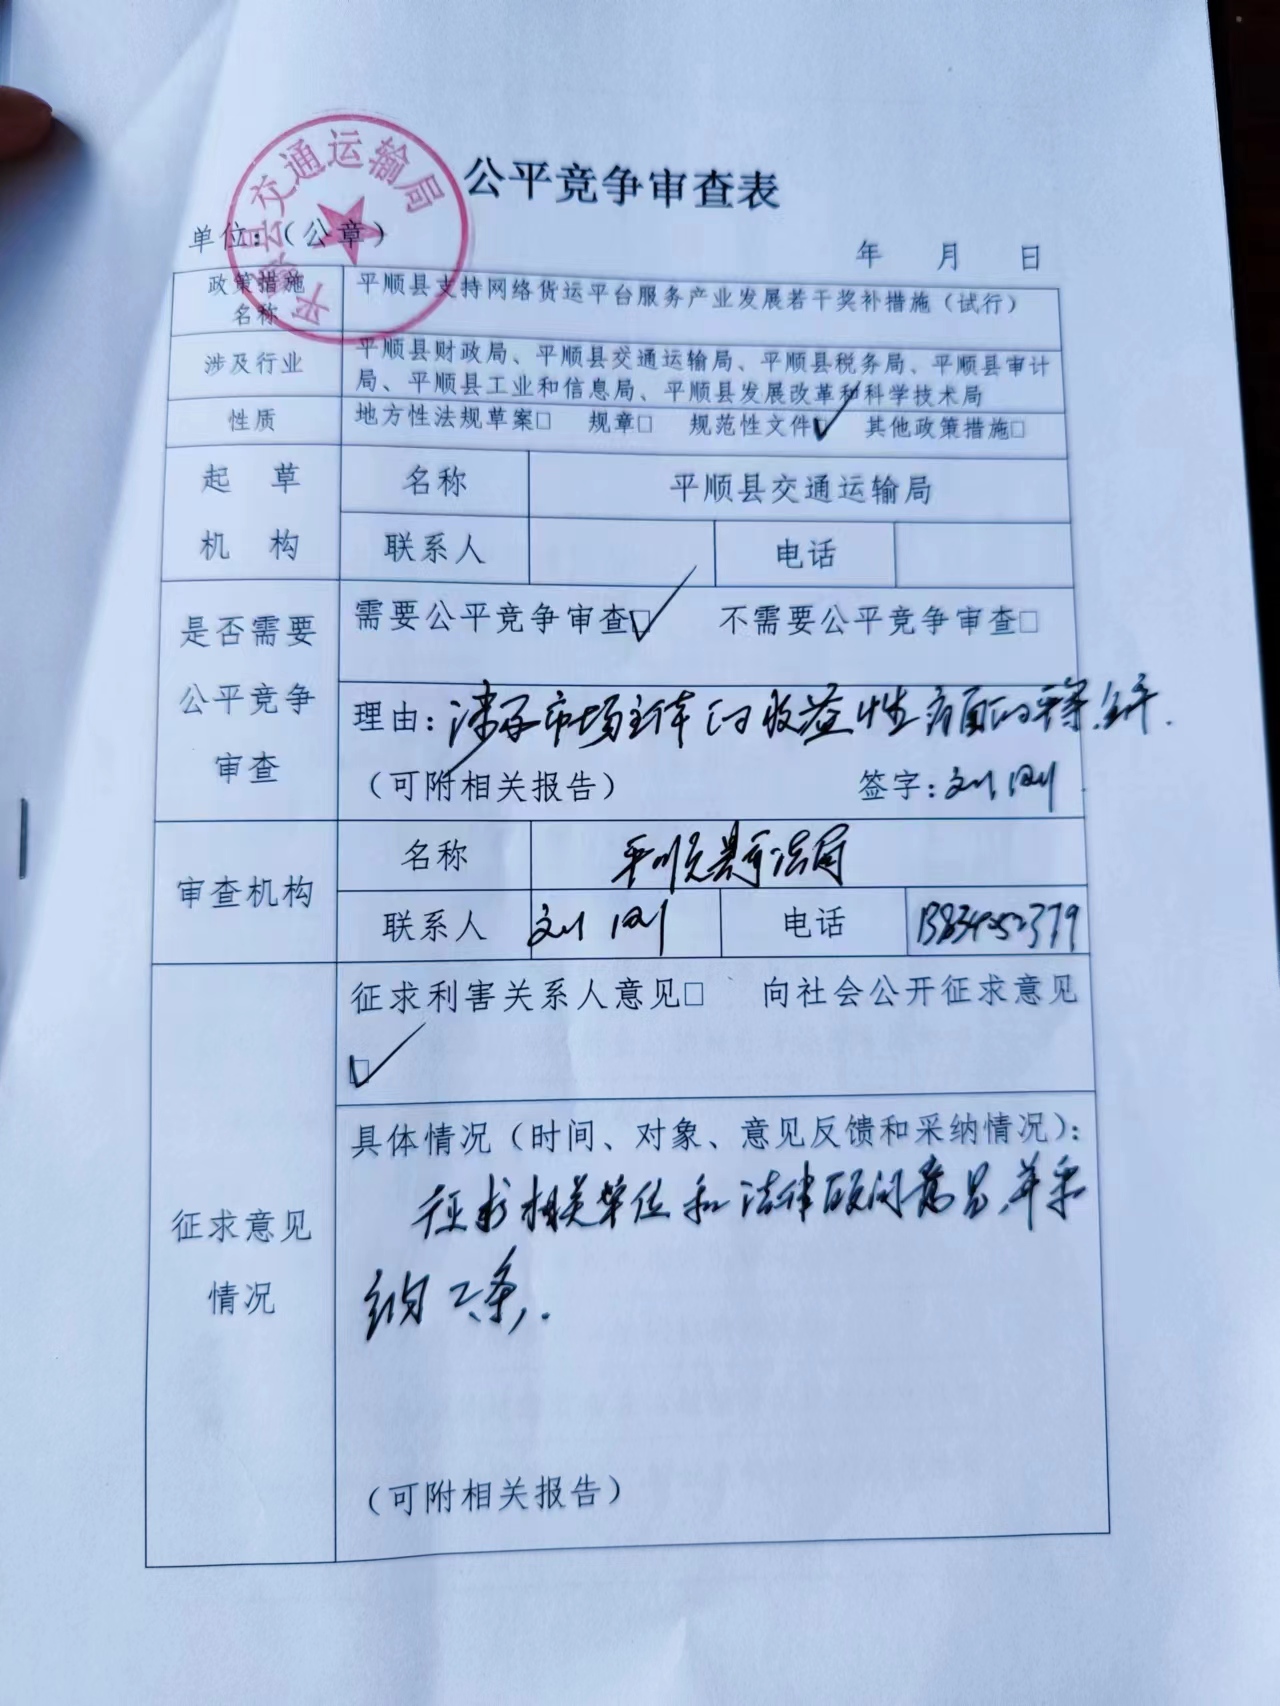 平顺县交通运输局
公平竞争审查表
单位：（公章）
年 月 日
政策措施
名称
平顺县支持网络货运平台服务产业发展若干奖补措施（试行）
涉及行业
平顺县财政局、平顺县交通运输局、平顺县税务局、平顺县审计
局、平顺县工业和信息局、平顺县发展改革和科学技术局
性质
地方性法规草案□ 规章□ 规范性文件☑ 其他政策措施□
起草
机构
名称
平顺县交通运输局
联系人
电话
是否需要
公平竞争
审查
需要公平竞争审查☑ 不需要公平竞争审查□
理由：涉及市场主体的收益性方面的
（可附相关报告）
签字：刘刚
审查机构
名称
平顺县司法局
联系人
刘刚
电话
征求意见
情况
征求利害关系人意见□ 向社会公开征求意见
☑
具体情况（时间、对象、意见反馈和采纳情况）：
征求相关单位和法律顾问意见，并采
纳 条．
（可附相关报告）